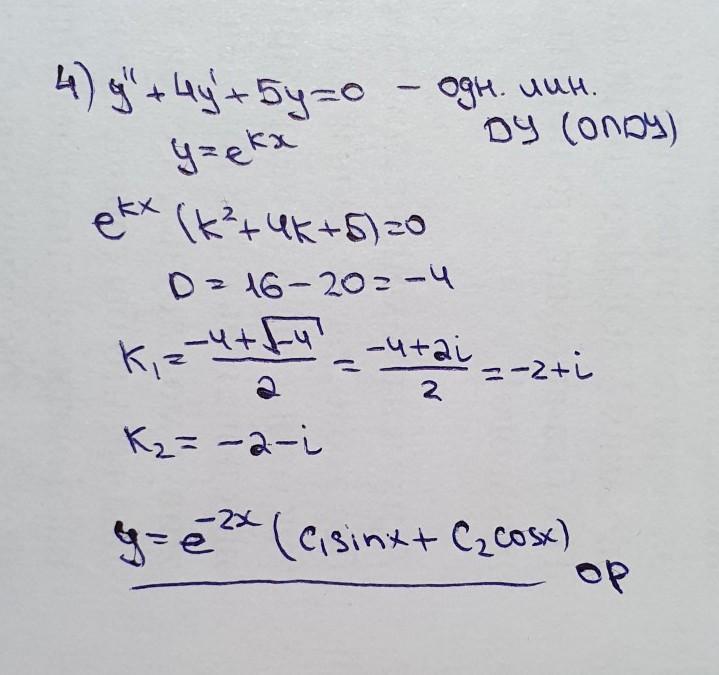 4) y'' + 4y' + 5y = 0 – одн. лин.
ДУ (ОЛДУ)
y = e^{kx}
e^{kx} (k² + 4k + 5) = 0
D = 16 – 20 = –4
K₁ = \frac{-4 + \sqrt{-4}}{2} = \frac{-4 + 2i}{2} = –2 + i
K₂ = –2 – i
y = e^{-2x} (C₁sinx + C₂cosx)
ор